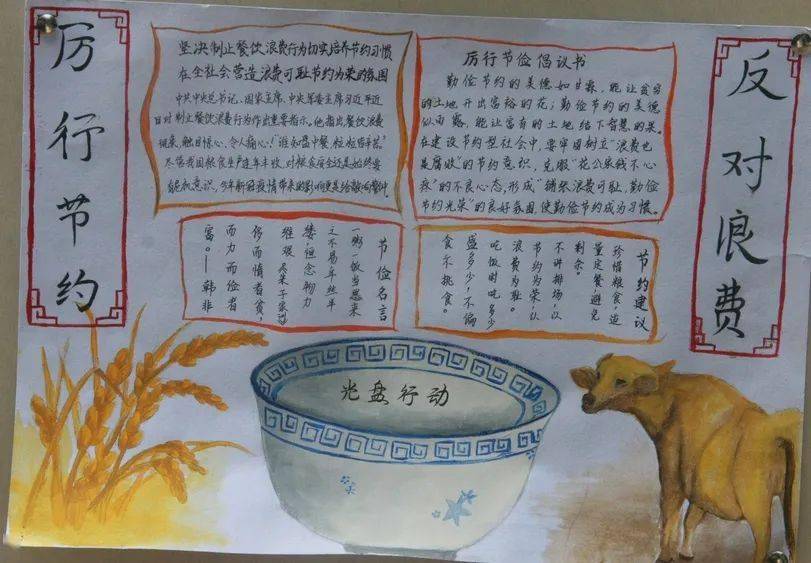 厉行节约
坚决制止餐饮浪费行为切实培养节约习惯
在全社会营造浪费可耻节约为荣的氛围
中共中央总书记、国家主席、中央军委主席习近平近
日对制止餐饮浪费行为作出重要指示。他指出餐饮浪费
现象，触目惊心、令人痛心！“谁知盘中餐，粒粒皆辛苦。”
尽管我国粮食生产连年丰收，对粮食安全还是始终要
有危机意识，今年新冠疫情带来的影响更是给敲响警钟
厉行节俭倡议书
勤俭节约的美德如甘霖，能让贫穷
的土地开出富裕的花；勤俭节约的美德
似雨露，能让富有的土地结下智慧的果。
在建设节约型社会中，要牢固树立“浪费也
是腐败”的节约意识，克服“花公家钱不心
疼”的不良心态，形成“铺张浪费可耻，勤俭
节约光荣”的良好氛围，使勤俭节约成为习惯。
反对浪费
节俭名言
一粥一饭当思来
之不易半丝半
缕，恒念物力
维艰
侈而惰者贫，
而力而俭者
富。——韩非
节约建议
珍惜粮食，适
量定餐，避免
剩余。
不讲排场，以
节约为荣，以
浪费为耻。
吃饭时吃多少
盛多少，不偏
食不挑食。
光盘行动